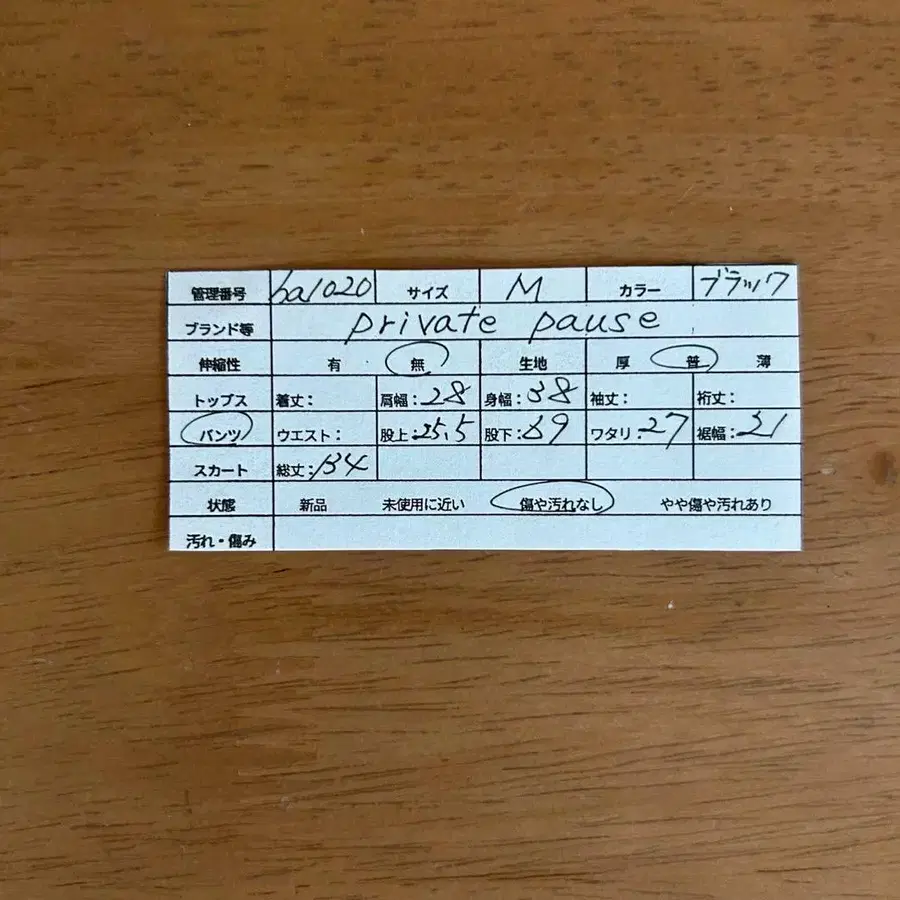 管理番号 ha1020 サイズ M カラー ブラック
ブランド等 private pause
伸縮性 有 無 生地 厚 普 薄
トップス 着丈: 肩幅:28 身幅:38 袖丈: 裄丈:
パンツ ウエスト: 股上:25.5 股下:69 ワタリ:27 裾幅:21
スカート 総丈:134
状態 新品 未使用に近い 傷や汚れなし やや傷や汚れあり
汚れ・傷み